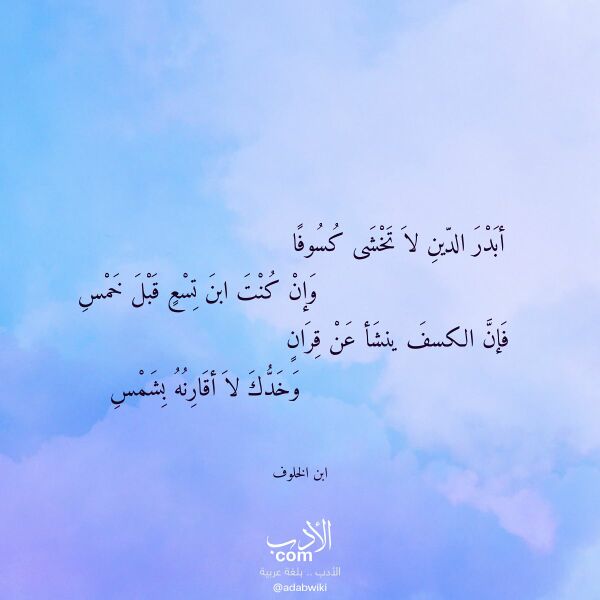 أبَدْرَ الدّينِ لاَ تَخْشَى كُسُوفًا
وَإنْ كُنْتَ ابنَ تِسْعٍ قَبْلَ خَمْسِ
فَإنَّ الكسفَ ينشَأ عَنْ قِرَانٍ
وَخَدُّكَ لاَ أقَارِنُهُ بِشَمْسِ
ابن الخلوف
الأدب
com
الأدب .. بلغة عربية
@adabwiki